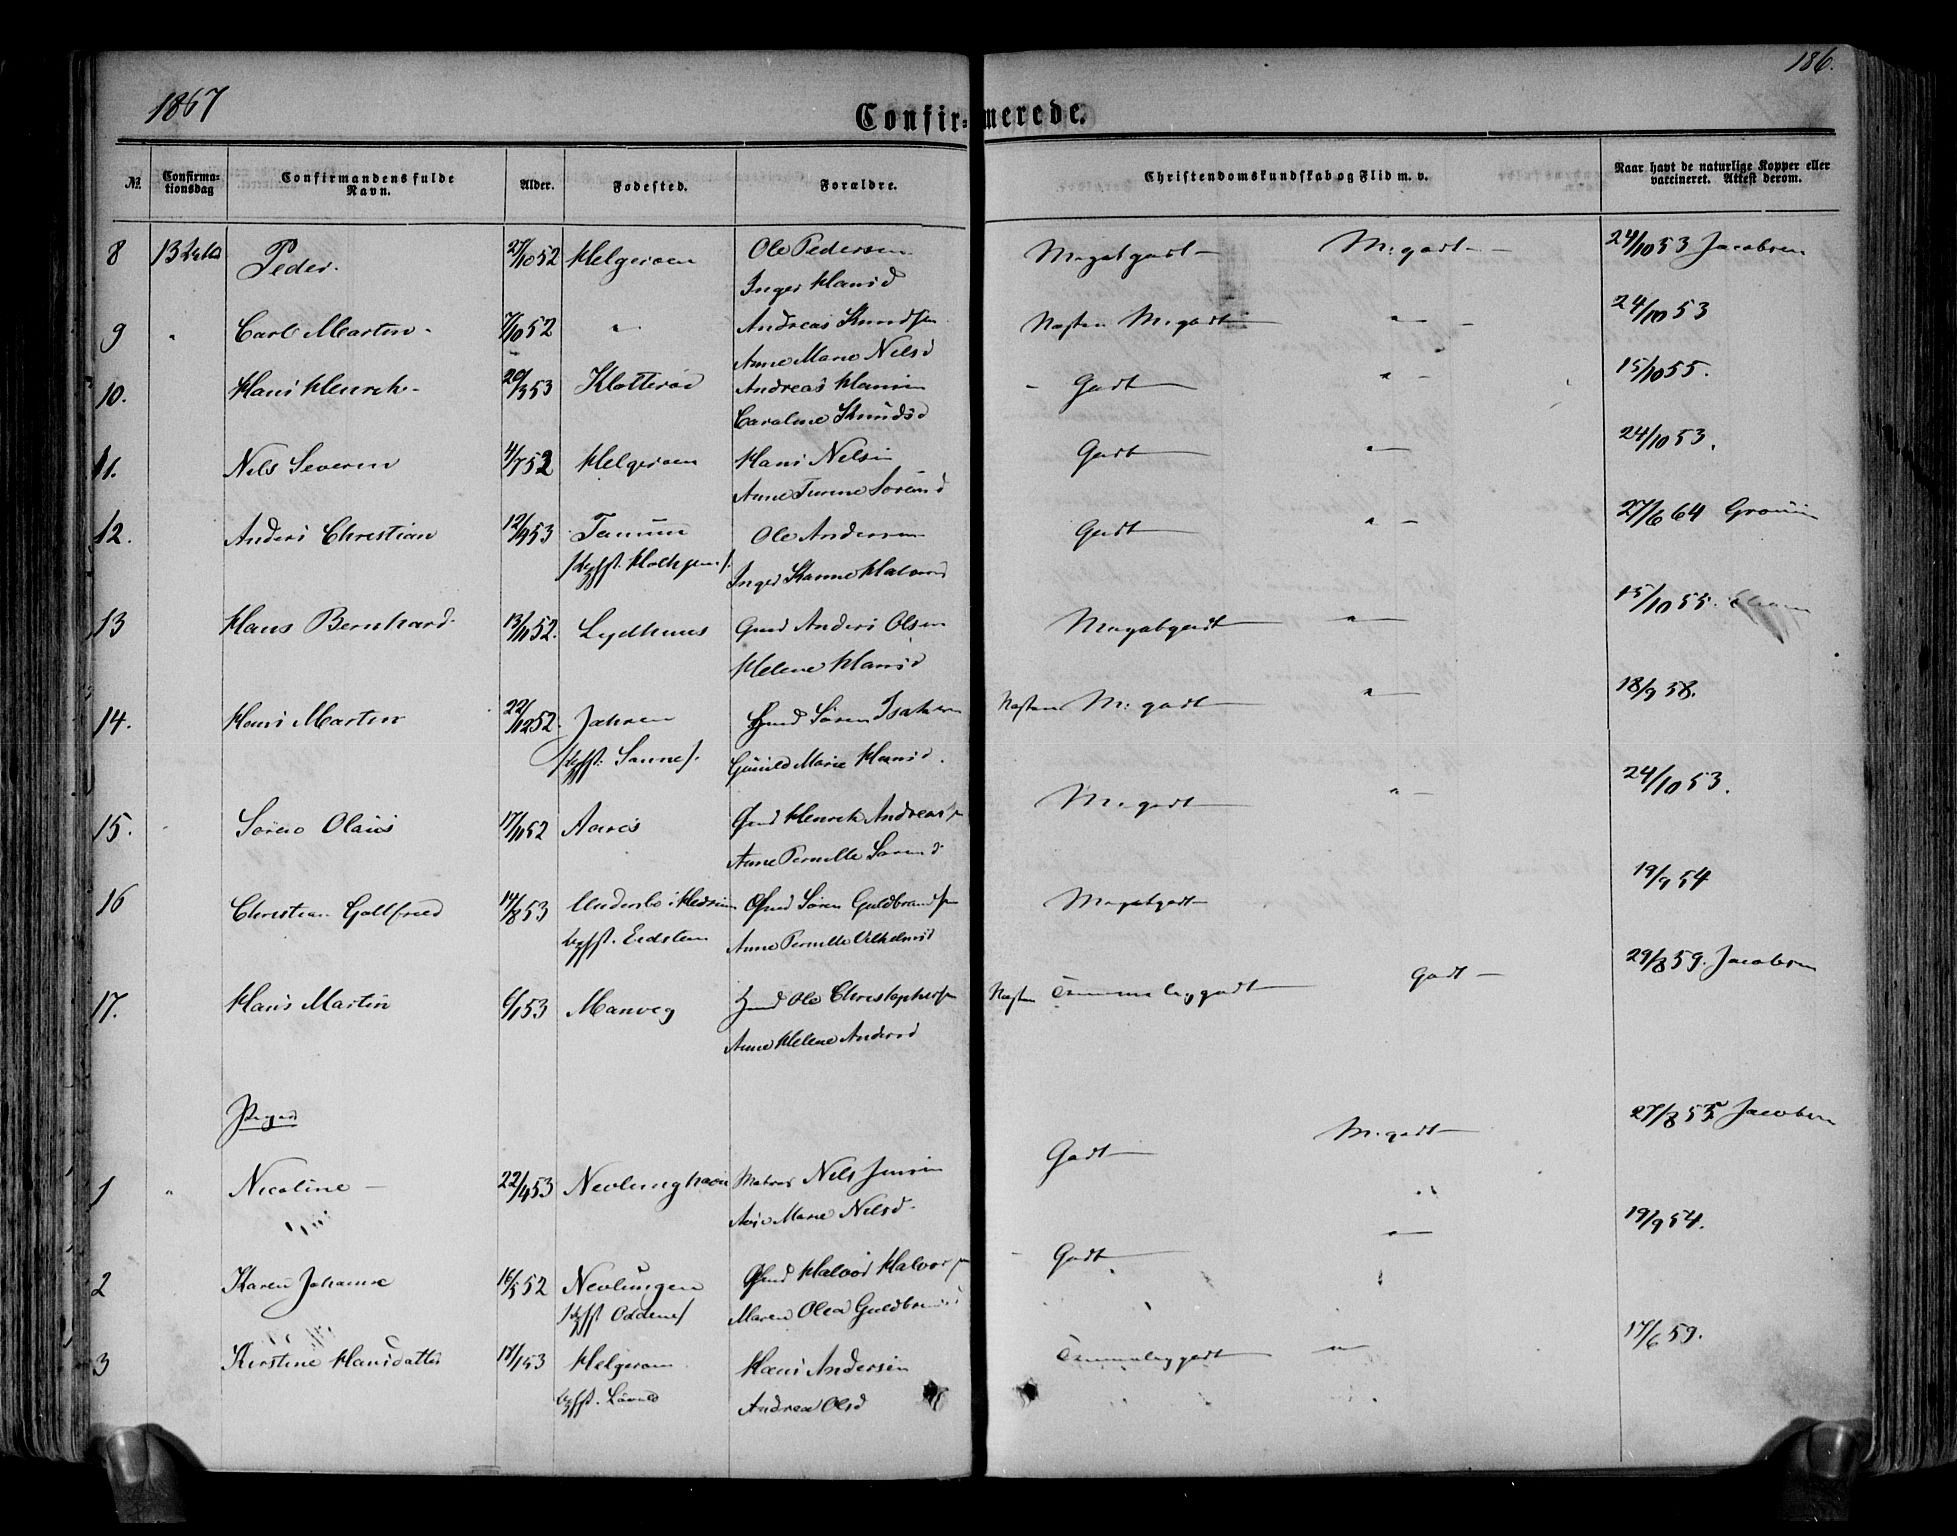 1867
186.
Confirmerede.
№ Confirmationsdag Confirmandens fulde Navn. Alder. Fødested. Forældre. Christendomskundskab og Flid m. v. Naar havt de naturlige Kopper eller vaccineret. Attest derom.
8 13 Peder. 27/10 52 Helgeroen Ole Pedersen Megetgodt M: godt 24/10 53 Jacobsen
Inger Hansd
9 " Carl Martin 7/10 52 " Andreas Knudsen Næsten M. godt " 24/10 53
Anne Marie Nilsd
10. Hans Henrik 20/3 53 Klotterød Andreas Hansen Godt " 15/10 55.
Caroline Knudsd
11. Nils Severin 4/7 52 Helgeroen Hans Nilsen Godt " 24/10 53.
Anne Turine Sørensd
12. Anders Christian 12/9 53 Tanum Ole Andersen Godt " 27/6 64
Inger Halvorsd
13 Hans Bernhard. 13/11 52. Lydhuus Gmd Anders Olsen Megetgodt " 15/10 55.
Helene Hansd
14. Hans Martin 22/12 52. Jahren Hmd Søren Isaksen Næsten M: godt " 18/9 58.
Gunild Marie Hansd.
15. Søren Olaus 17/11 52 Aarøs Gmd Henrik Andreassen M. godt " 24/10 53.
Anne Pernille Sørensd
16 Christian Gottfried 14/8 53 Søren Guldbrandsen Megetgodt 19/9 54
Eidsten Anne Pernille Vilhelmsd
17. Hans Martin 6/1 53 Manveg Hmd Ole Christophersen Næsten Temmeliggodt Godt 29/8 59. Jacobsen
Anne Helene Andersd
Piger
1 " Nicoline 22/4 53 Nevlunghavn Matros Nils Jensen Godt M. godt 27/8 55 Jacobsen
Marie Nilsd.
2 Karen Johanne 16/5 52 Nevlungen Halvor Halvorsen Godt " 19/9 54.
Oddene Maren Olea
3 Kirstine Hansdatter 17/1 53 Helgeroen Hans Andersen Temmeliggodt " 17/6 59.
Andrea Olsd